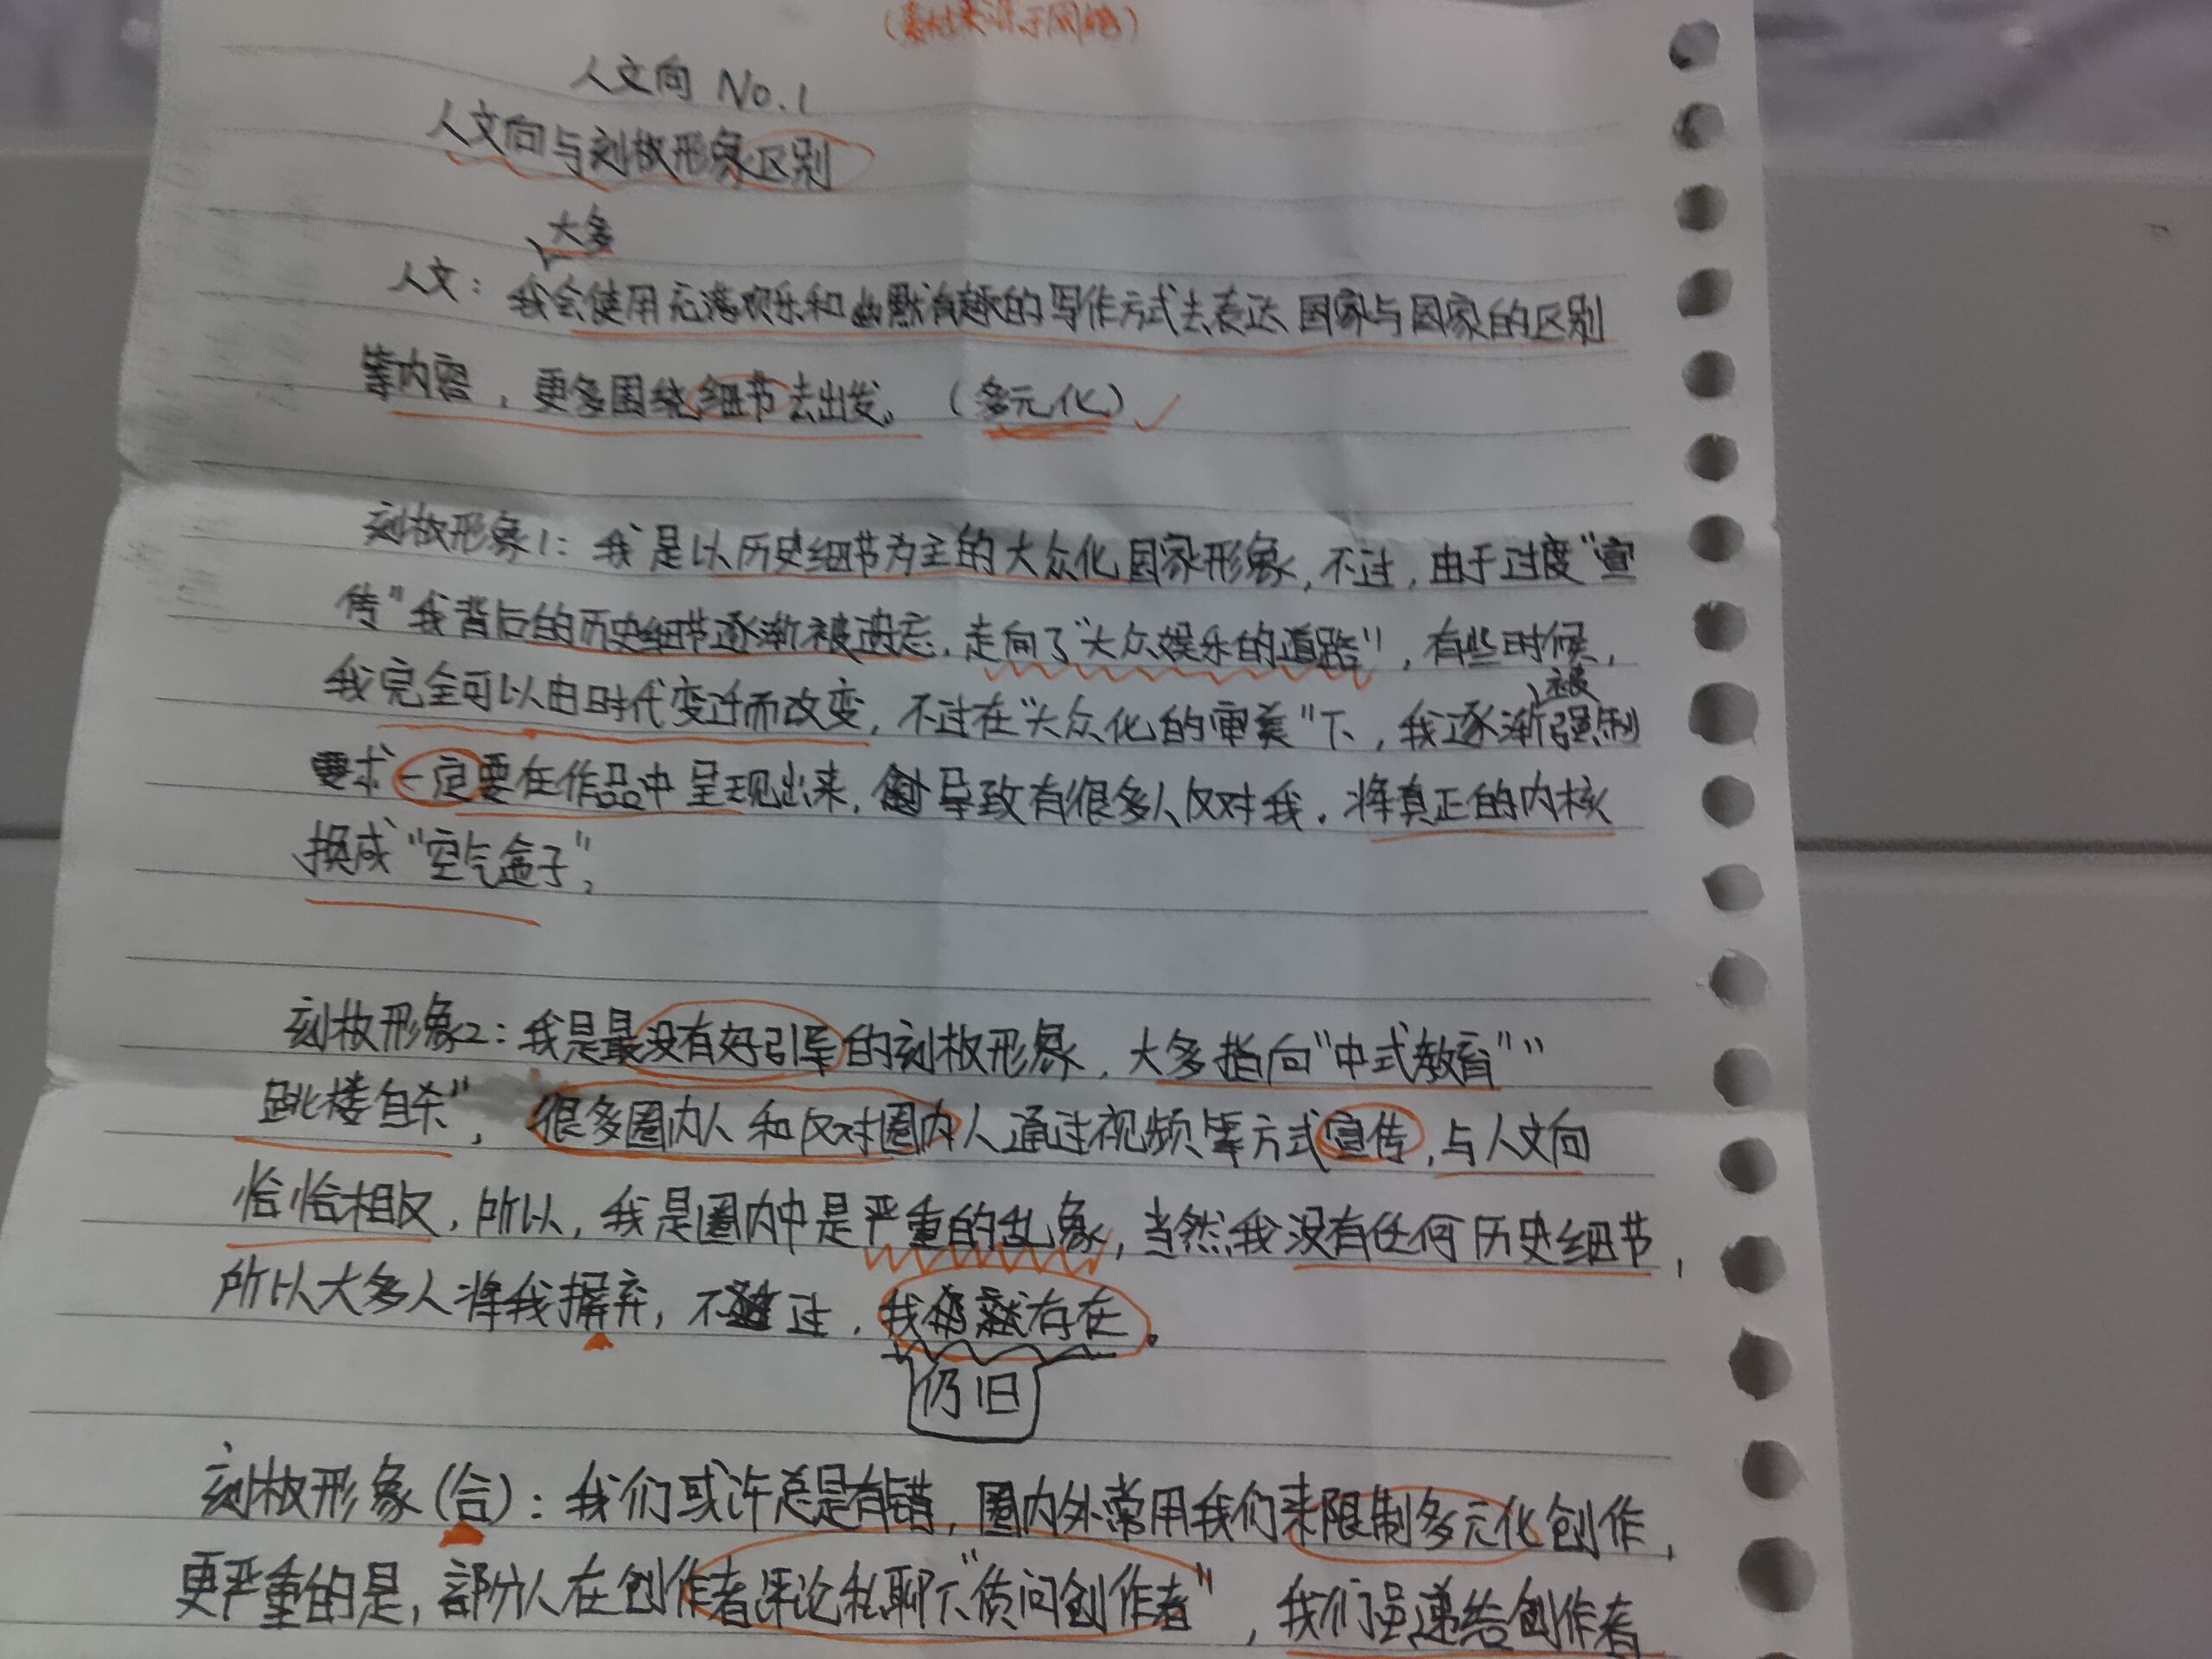 (素材来源于网络)
人文向 No.1
人文向与刻板形象区别
大多
人文：我会使用充满欢乐和幽默有趣的写作方式去表达国家与国家的区别
等内容，更多围绕细节去出发。（多元化）
刻板形象1：我是以历史细节为主的大众化国家形象，不过，由于过度“宣
传”我背后的历史细节逐渐被遗忘，走向了“大众娱乐的道路”，有些时候，
我完全可以由时代变迁而改变，不过在“大众化的审美”下，我逐渐被强制
要求一定要在作品中呈现出来，导致有很多人反对我，将真正的内核
换成“空气盒子”。
刻板形象2：我是最没有好引导的刻板形象，大多指向“中式教育”“
跳楼自杀”，很多圈内人和反对圈内人通过视频等方式宣传，与人文向
恰恰相反，所以，我是圈内中是严重的乱象，当然我没有任何历史细节，
所以大多人将我摒弃，不过，我存在。
仍旧
刻板形象(合)：我们或许总是有错，圈内外常用我们来限制多元化创作，
更严重的是，部分人在创作者评论私聊下“质问创作者”，我们强递给创作者